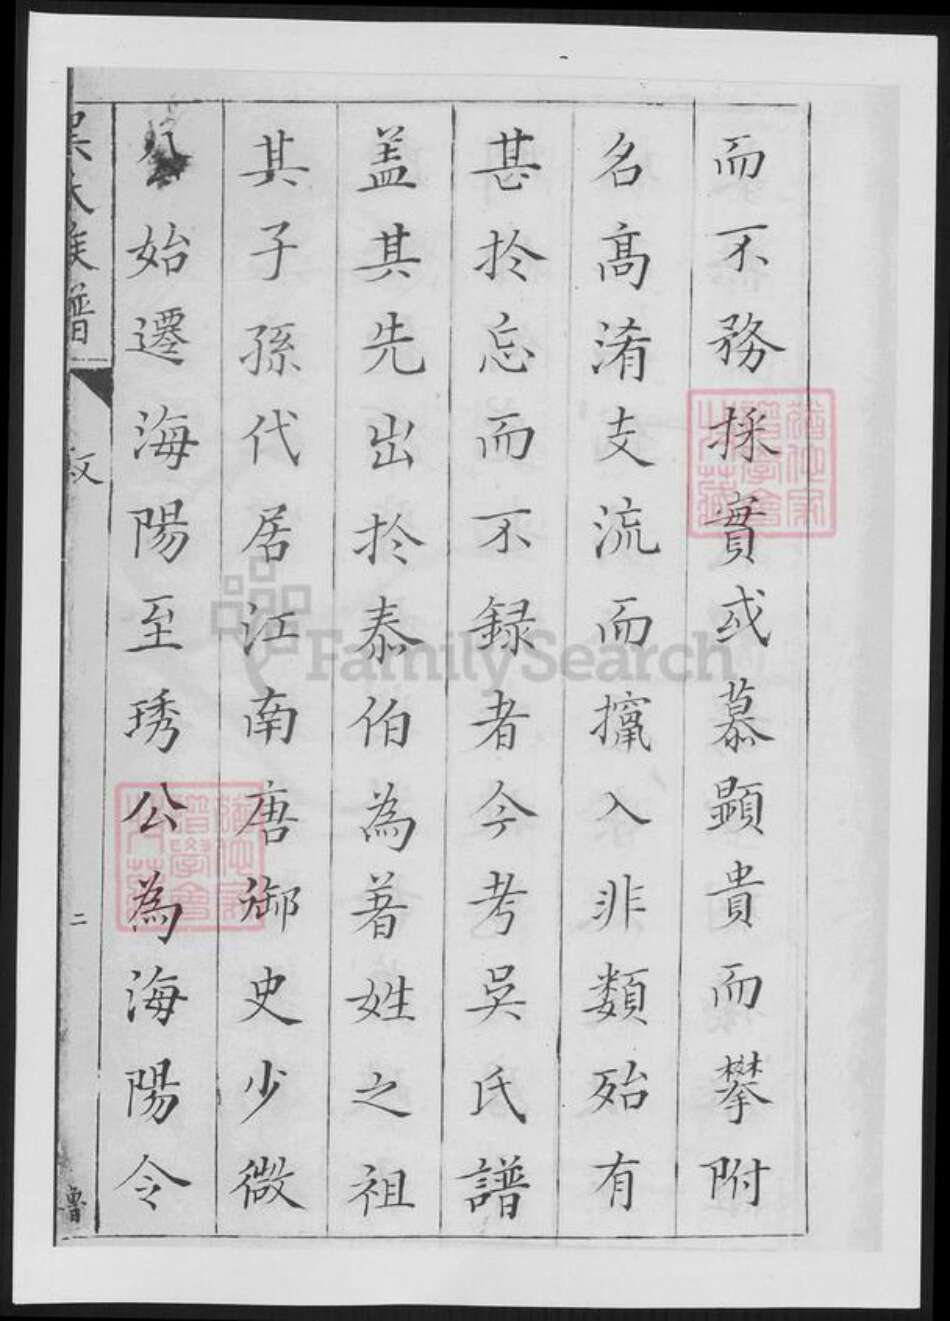 而不務採實或慕顯貴而攀附
名高淆支流而攛入非類殆有
甚於忘而不録者今考吳氏譜
盖其先出於泰伯為著姓之祖
其子孫代居江南唐御史少微
始遷海陽至琇公為海陽令
吳氏族譜
文
二
魯
FamilySearch